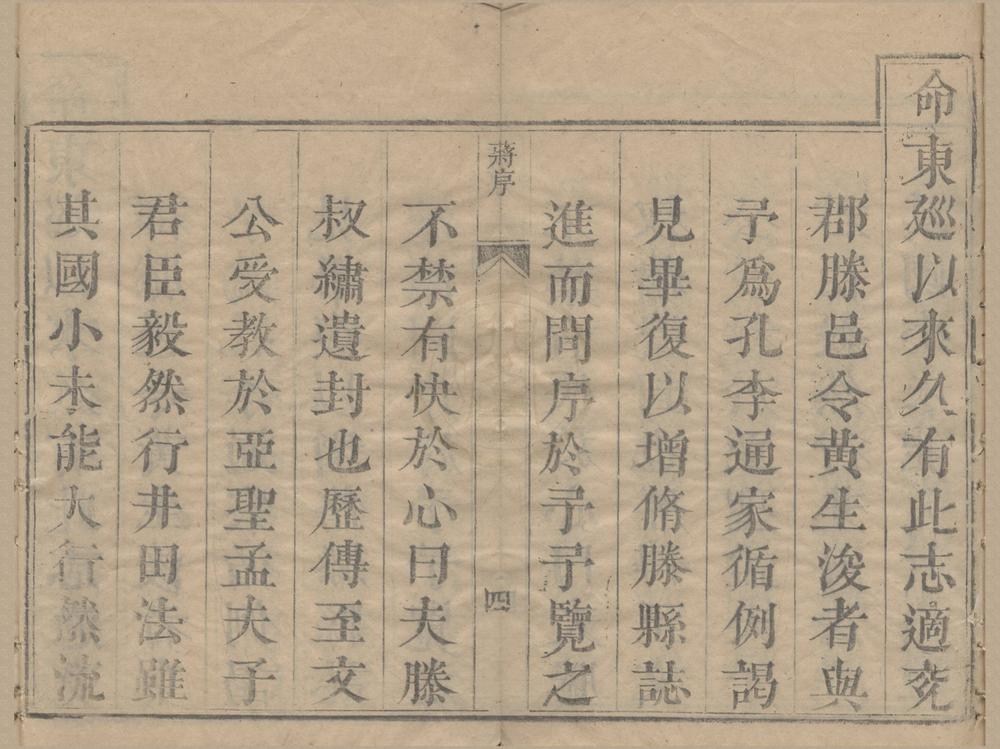 命東廵以來久有此志適兖
郡滕邑令黄生浚者與
予爲孔李通家循例謁
見畢復以增脩滕縣誌
進而問序於予予覽之
蔣序
四
不禁有快於心曰夫滕
叔繡遺封也歷傳至文
公受教於亞聖孟夫子
君臣毅然行井田法雖
其國小未能大行然流